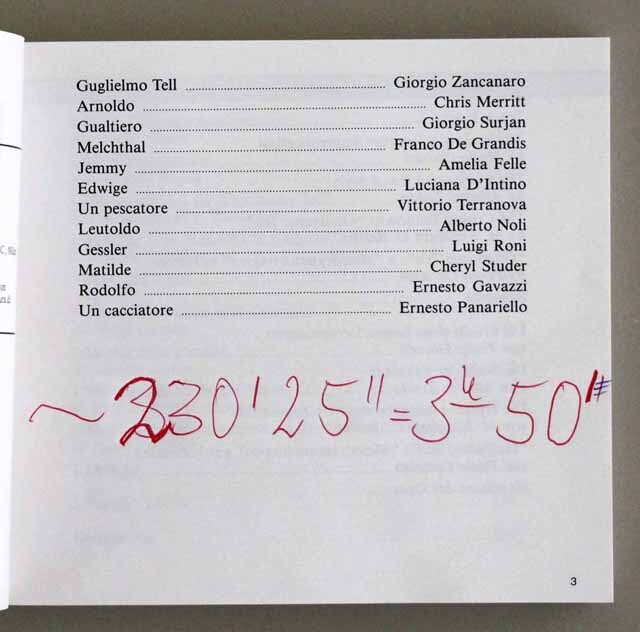 Guglielmo Tell ........................................................ Giorgio Zancanaro
Arnoldo ........................................................ Chris Merritt
Gualtiero ........................................................ Giorgio Surjan
Melchthal ........................................................ Franco De Grandis
Jemmy ........................................................ Amelia Felle
Edwige ........................................................ Luciana D'Intino
Un pescatore ........................................................ Vittorio Terranova
Leutoldo ........................................................ Alberto Noli
Gessler ........................................................ Luigi Roni
Matilde ........................................................ Cheryl Studer
Rodolfo ........................................................ Ernesto Gavazzi
Un cacciatore ........................................................ Ernesto Panariello
~ 230' 25" = 3 h 50'
3